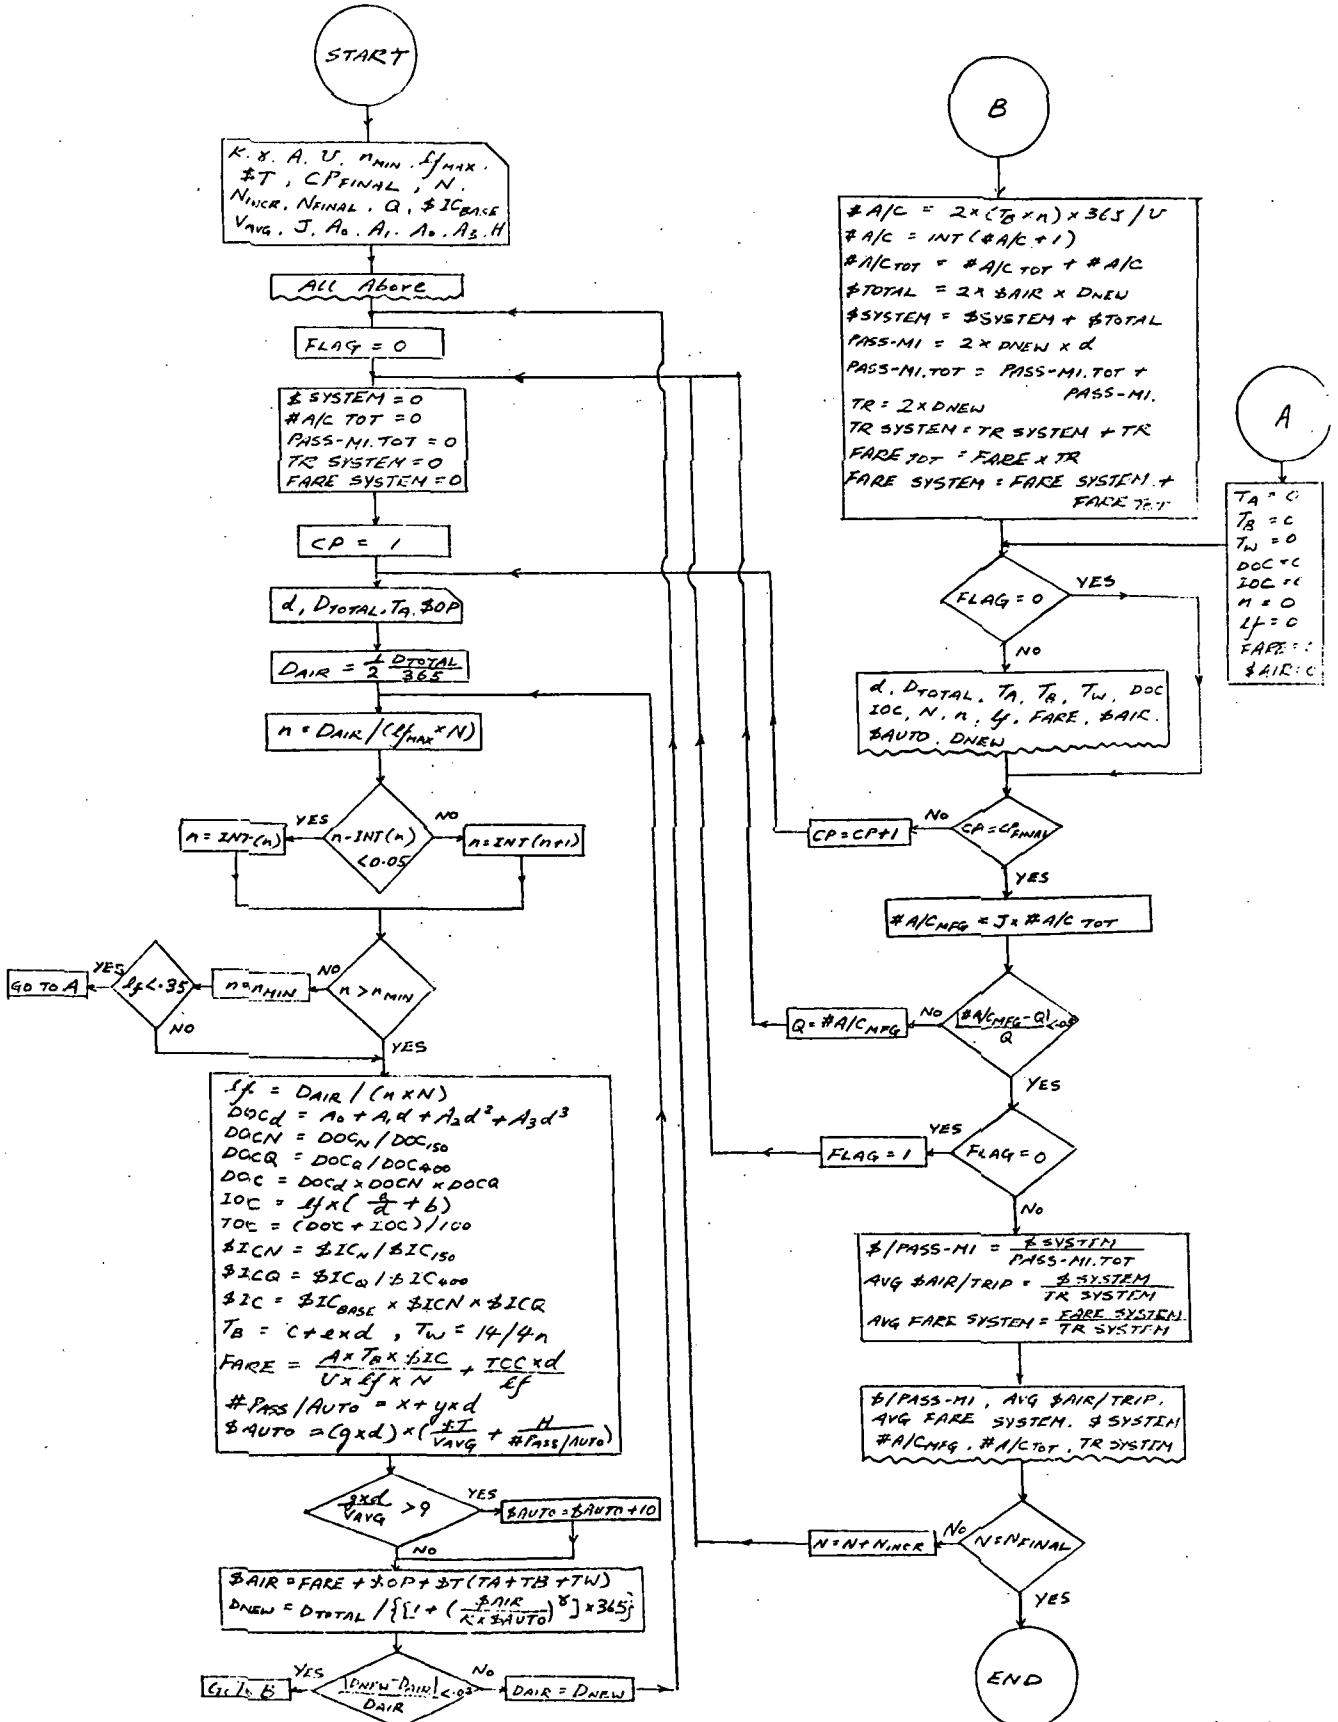 START
K. γ. A. U. nMIN. lfMAX.
$T, CPFINAL, N.
NINCR. NFINAL. Q, $ICBASE
VAVG. J. A0. A1. A0. A3. H
All Above
FLAG = 0
$ SYSTEM = 0
#A/C TOT = 0
PASS-MI. TOT = 0
TR SYSTEM = 0
FARE SYSTEM = 0
CP = 1
d, DTOTAL, TA, $OP
DAIR = 1/2 DTOTAL/365
n = DAIR/(lfMAX × N)
n-INT(n) <0.05
YES
NO
n = INT(n)
n = INT(n+1)
n > nMIN
NO
YES
n=nMIN
lf <.35
YES
NO
GO TO A
lf = DAIR/(n×N)
DOCd = A0 + A1d + A2d² + A3d³
DOCN = DOCN/DOC150
DOCQ = DOCQ/DOC400
DOC = DOCd × DOCN × DOCQ
IOC = lf × (a/d + b)
TOC = (DOC + IOC)/100
$ICN = $ICN/$IC150
$ICQ = $ICQ/$IC400
$IC = $ICBASE × $ICN × $ICQ
TB = C + e×d, TW = 14/4n
FARE = A × TB × $IC / U × lf × N + TOC × d / lf
#PASS/AUTO = x + y×d
$AUTO = (g×d) × ($T/VAVG + H/#PASS/AUTO)
g×d/VAVG > 9
YES
NO
$AUTO = $AUTO + 10
$AIR = FARE + $OP + $T(TA+TB+TW)
DNEW = DTOTAL/{[1 + ($AIR/K×$AUTO)^γ] × 365}
|DNEW-DAIR|/DAIR <.02
YES
NO
Go To B
DAIR = DNEW
B
#A/C = 2×(TB×n)×365/U
#A/C = INT(#A/C+1)
#A/CTOT = #A/CTOT + #A/C
$TOTAL = 2×$AIR × DNEW
$SYSTEM = $SYSTEM + $TOTAL
PASS-MI = 2×DNEW × d
PASS-MI.TOT = PASS-MI.TOT +
PASS-MI.
TR = 2×DNEW
TR SYSTEM = TR SYSTEM + TR
FARE TOT = FARE × TR
FARE SYSTEM = FARE SYSTEM +
FARE TOT
A
TA = 0
TB = 0
TW = 0
DOC = 0
IOC = 0
n = 0
lf = 0
FARE = 0
$AIR = 0
FLAG = 0
YES
NO
d, DTOTAL, TA, TB, TW, DOC
IOC, N, n, lf, FARE, $AIR.
$AUTO, DNEW
CP=CPFINAL
NO
YES
CP=CP+1
#A/CMFG = J × #A/C TOT
|#A/CMFG-Q|/Q <.05
NO
YES
Q = #A/CMFG
FLAG = 0
YES
NO
FLAG = 1
$/PASS-MI = $ SYSTEM/PASS-MI.TOT
AVG $AIR/TRIP = $ SYSTEM/TR SYSTEM
AVG FARE SYSTEM = FARE SYSTEM/TR SYSTEM
$/PASS-MI, AVG $AIR/TRIP.
AVG FARE SYSTEM. $ SYSTEM
#A/CMFG, #A/CTOT, TR SYSTEM
N=NFINAL
NO
YES
N=N+NINCR
END